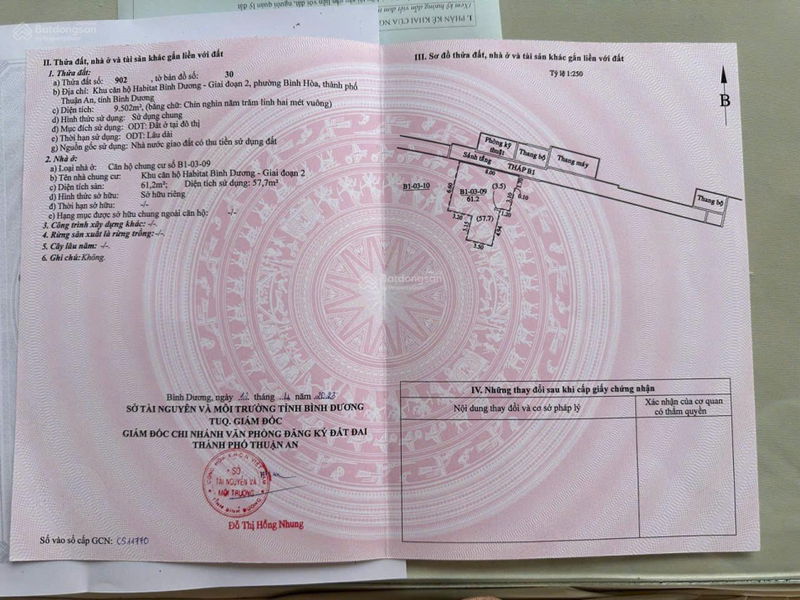 I. PHẦN KÊ KHAI CỦA NG
Batdongsan
II. Thửa đất, nhà ở và tài sản khác gắn liền với đất
1. Thửa đất:
a) Thửa đất số: 902 , tờ bản đồ số: 30
b) Địa chỉ: Khu căn hộ Habitat Bình Dương - Giai đoạn 2, phường Bình Hòa, thành phố
Thuận An, tỉnh Bình Dương
c) Diện tích: 9.502m², (bằng chữ: Chín nghìn năm trăm linh hai mét vuông)
d) Hình thức sử dụng: Sử dụng chung
đ) Mục đích sử dụng: ODT: Đất ở tại đô thị
e) Thời hạn sử dụng: ODT: Lâu dài
g) Nguồn gốc sử dụng: Nhà nước giao đất có thu tiền sử dụng đất
2. Nhà ở:
a) Loại nhà ở: Căn hộ chung cư số B1-03-09
b) Tên nhà chung cư: Khu căn hộ Habitat Bình Dương - Giai đoạn 2
c) Diện tích sàn: 61,2m²; Diện tích sử dụng: 57,7m²
d) Hình thức sở hữu: Sở hữu riêng
đ) Thời hạn sở hữu: -/-
e) Hạng mục được sở hữu chung ngoài căn hộ: -/-
3. Công trình xây dựng khác: -/-
4. Rừng sản xuất là rừng trồng: -/-
5. Cây lâu năm: -/-
6. Ghi chú: Không.
Bình Dương, ngày tháng năm 2023
SỞ TÀI NGUYÊN VÀ MÔI TRƯỜNG TỈNH BÌNH DƯƠNG
TUQ. GIÁM ĐỐC
GIÁM ĐỐC CHI NHÁNH VĂN PHÒNG ĐĂNG KÝ ĐẤT ĐAI
THÀNH PHỐ THUẬN AN
SỞ
TÀI NGUYÊN VÀ
MÔI TRƯỜNG
TỈNH BÌNH DƯƠNG
Đỗ Thị Hồng Nhung
Số vào sổ cấp GCN:
III. Sơ đồ thửa đất, nhà ở và tài sản khác gắn liền với đất
Tỷ lệ 1:250
B
Phòng kỹ
thuật
Thang bộ
Thang máy
Sảnh tầng
THÁP B1
Thang bộ
B1-03-10
B1-03-09
61.2
(3.5)
(57.7)
3.50
Batdongsan
IV. Những thay đổi sau khi cấp giấy chứng nhận
Nội dung thay đổi và cơ sở pháp lý
Xác nhận của cơ quan
có thẩm quyền
Batdongsan